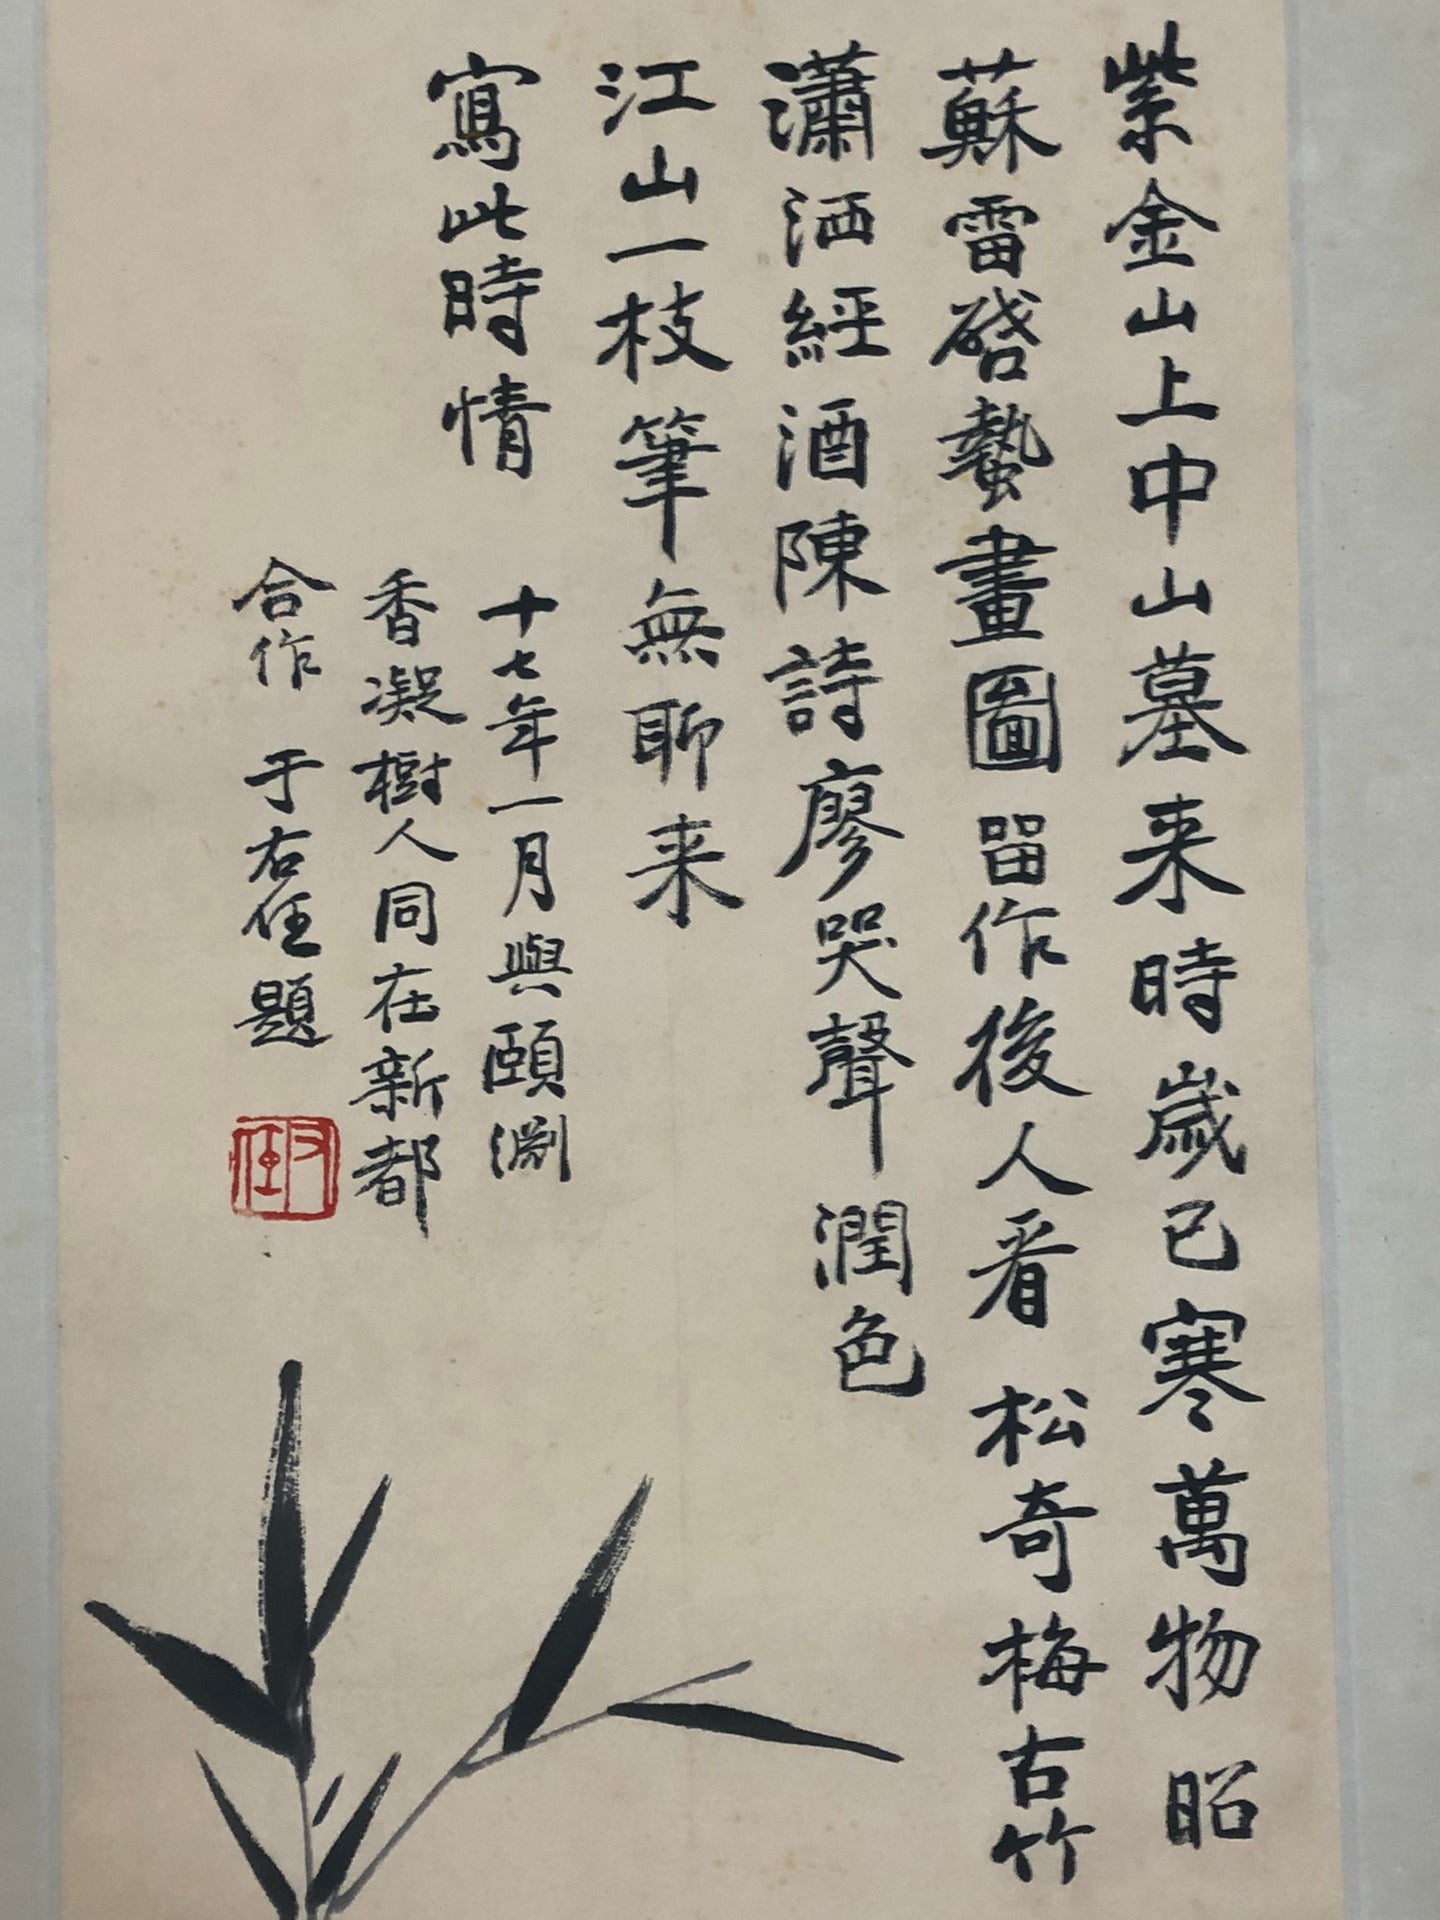 紫金山上中山墓来時歲已寒萬物昭
蘇雷啓蟄畫圖留作後人看松奇梅古竹
瀟洒經酒陳詩廖哭聲潤色
江山一枝筆無聊来
寫此時情
十七年一月與頤淵
香凝樹人同在新都
合作于右任題
右任